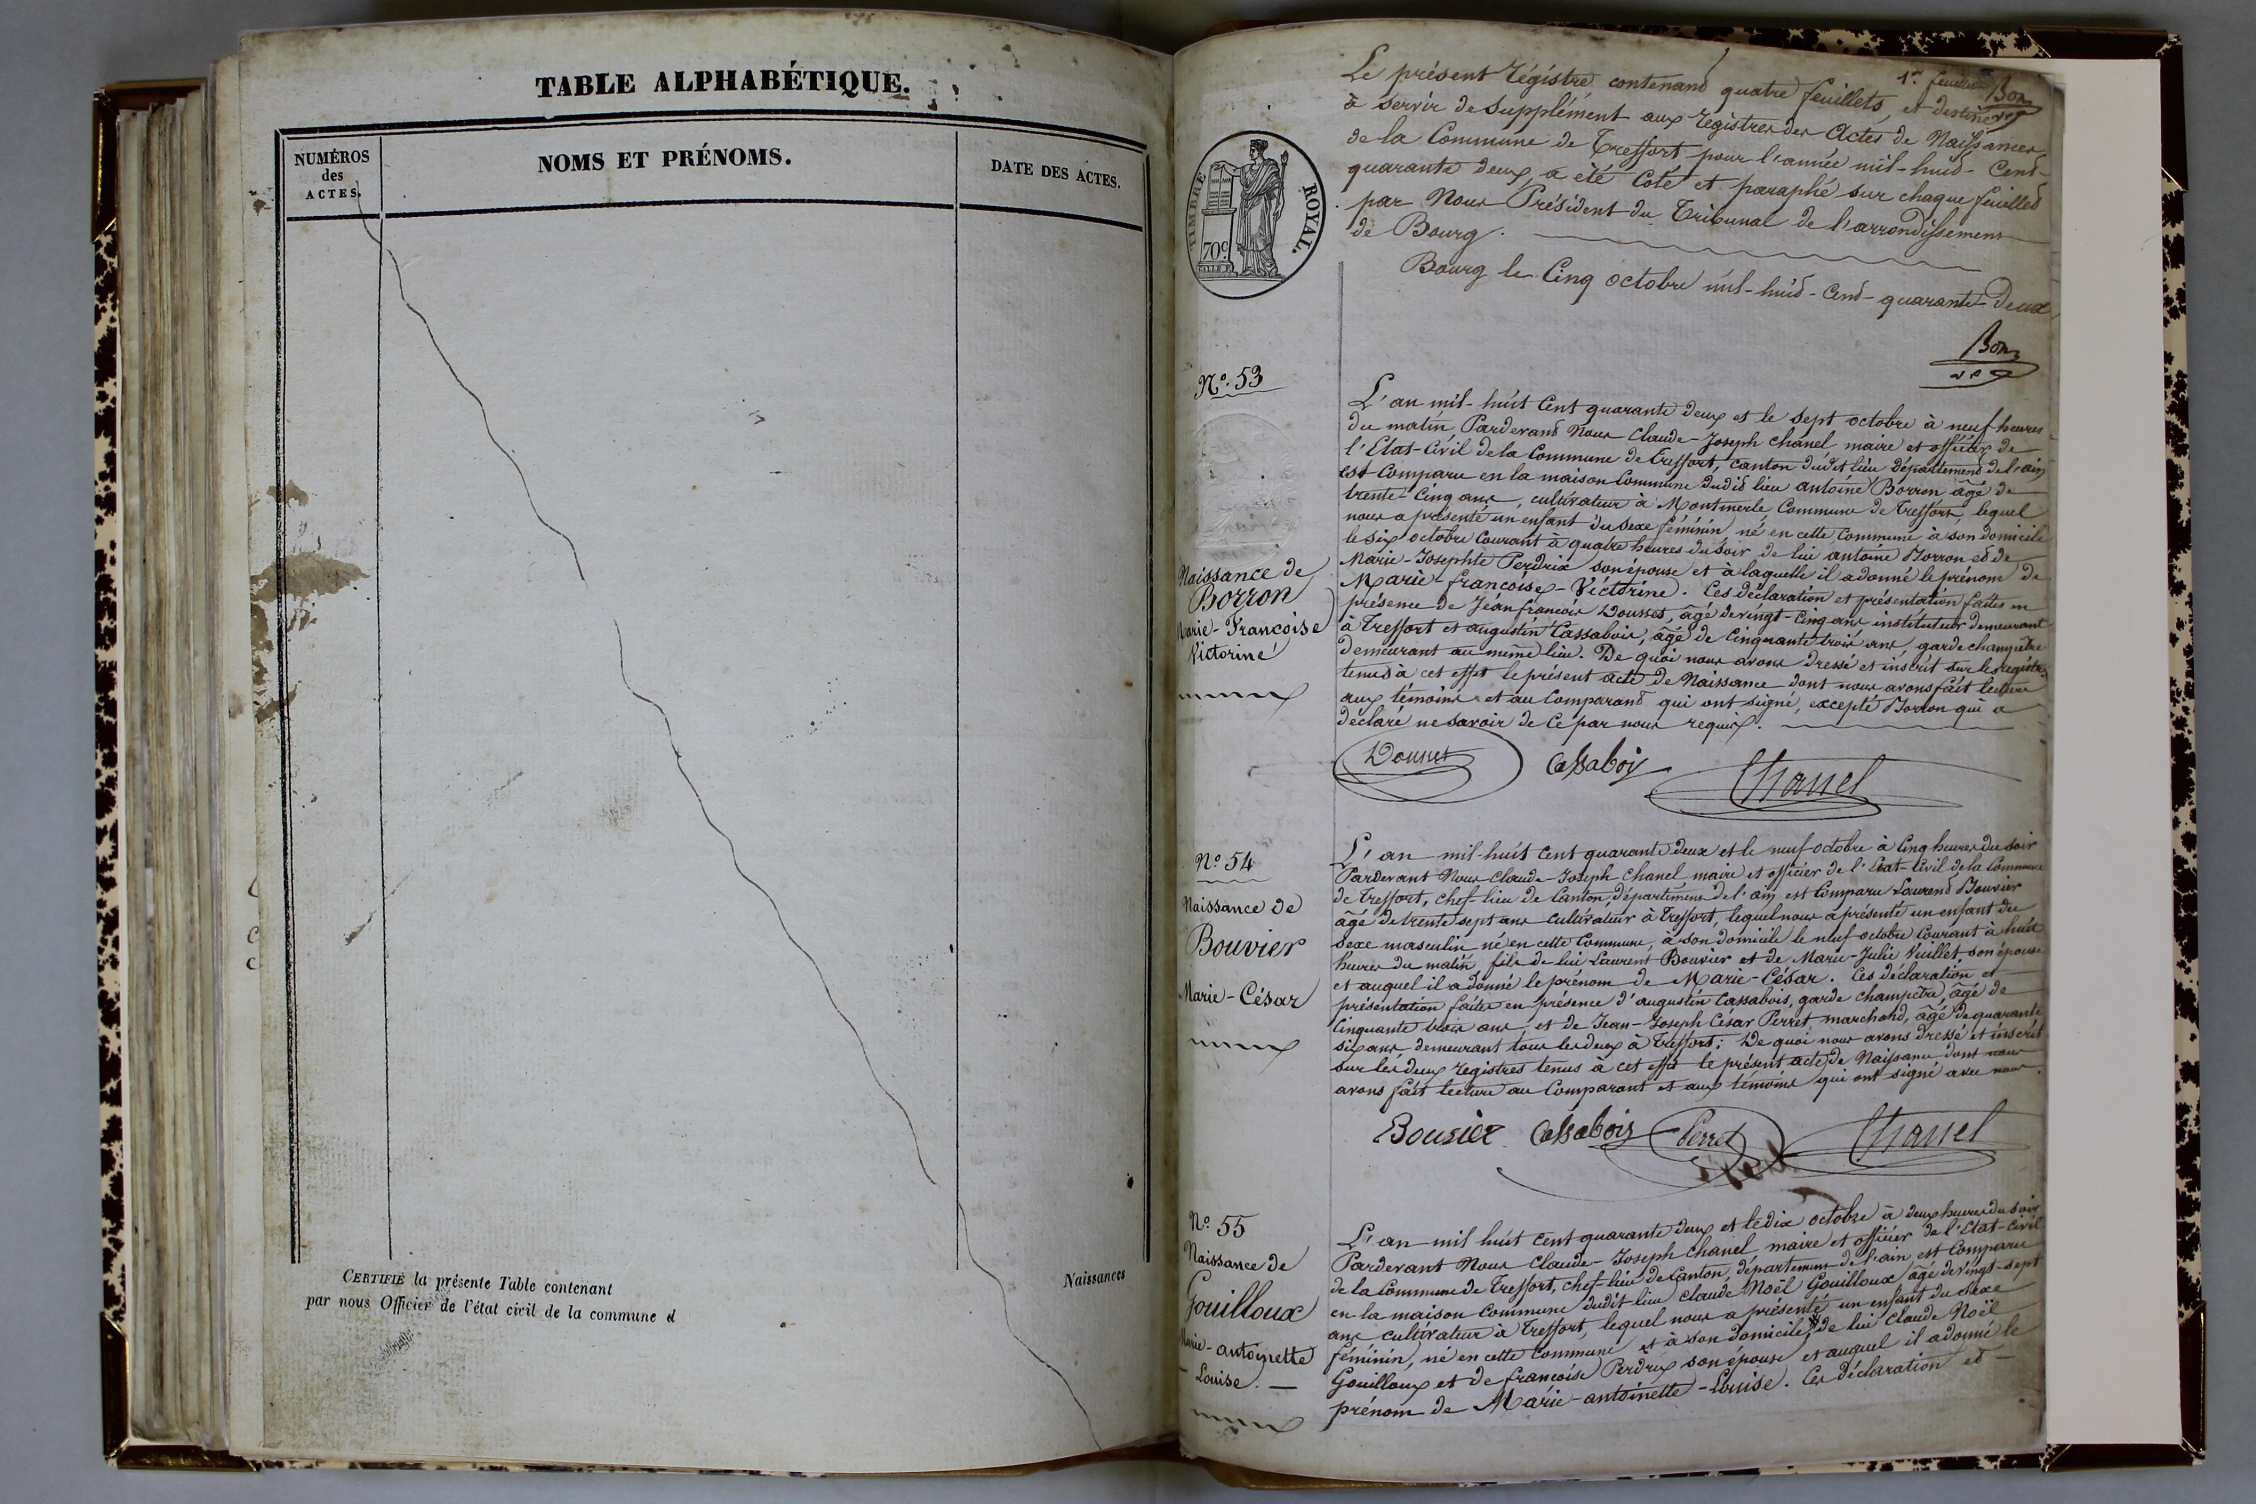 TABLE ALPHABÉTIQUE.
NUMÉROS
des
ACTES.
NOMS ET PRÉNOMS.
DATE DES ACTES.
CERTIFIÉ la présente Table contenant
Naissances
par nous Officier de l'état civil de la commune d
1er feuillet
Bon
Le présent régistre contenant quatre feuillets, et destiné
à servir de supplément aux registres des Actes de Naissances
de la Commune de Treffort pour l'année mil-huit-cent-
quarante deux, a été coté et paraphé sur chaque feuillet
par Nous Président du Tribunal de l'arrondissement
de Bourg.
Bourg le Cinq octobre mil-huit-cent-quarante-deux
Bon
TIMBRE ROYAL.
70c
N.° 53
Naissance de
Borron
Marie-Françoise
Victorine
L'an mil-huit cent quarante deux et le sept octobre à neuf heures
du matin Pardevant Nous Claude-Joseph Chanel maire et officier de
l'Etat-Civil de la Commune de Treffort, canton dudit lieu département de l'ain
est comparu en la maison Commune dudit lieu antoine Borron âgé de
trente-cinq ans, cultivateur à Montmerle Commune de Treffort, lequel
nous a présenté un enfant du sexe féminin né en cette Commune à son domicile
le six octobre courant à quatre heures du soir de lui antoine Borron et de
Marie-Josephte Perdrix son épouse et à laquelle il a donné le prénom de
Marie-françoise-Victorine. Ces déclaration et présentation faites en
présence de Jean françois Dousset, âgé de vingt-cinq ans instituteur demeurant
à Treffort et augustin Cassabois, âgé de cinquante trois ans, garde champêtre
demeurant au même lieu. De quoi nous avons dressé et inscrit sur les registres
tenus à cet effet le présent acte de Naissance dont nous avons fait lecture
aux témoins et au Comparant qui ont signé, excepté Borron qui a
déclaré ne savoir de ce par nous requis.
Cassaboiy
Chanel
N.° 54
Naissance de
Bouvier
Marie-César
L'an mil-huit cent quarante deux et le neuf octobre à cinq heures du soir
Pardevant Nous Claude-Joseph Chanel maire et officier de l'Etat-Civil de la Commune
de Treffort, chef-lieu de Canton, département de l'ain est Comparu Laurent Bouvier
âgé de trente sept ans cultivateur à Treffort, lequel nous a présenté un enfant du
sexe masculin né en cette Commune, à son domicile le neuf octobre courant à huit
heures du matin fils de lui Laurent Bouvier et de Marie-Julie Vuillet son épouse
et auquel il a donné le prénom de Marie-César. Ces déclaration et
présentation faites en présence d'augustin Cassabois, garde champêtre, âgé de
Cinquante trois ans, et de Jean-Joseph César Perret marchand, âgé de quarante
six ans demeurant tous les deux à Treffort; De quoi nous avons dressé et inscrit
sur les deux registres tenus à cet effet le présent acte de Naissance dont nous
avons fait lecture au Comparant et aux témoins qui ont signé avec nous.
Bouvier Cassabois Perret Chanel
N.° 55
Naissance de
Gouilloux
Marie-antoinette
Louise.
L'an mil huit cent quarante deux et le dix octobre à deux heures du soir
Pardevant Nous Claude-Joseph Chanel maire et officier de l'Etat-Civil
de la Commune de Treffort, chef-lieu de Canton, département de l'ain, est Comparu
en la maison Commune dudit lieu Claude Noël Gouilloux âgé de vingt-sept
ans cultivateur à Treffort, lequel nous a présenté un enfant du sexe
féminin, né en cette Commune et à son domicile de lui Claude Noël
Gouilloux et de françoise Perdrix son épouse et auquel il a donné le
prénom de Marie-antoinette-Louise. Ces déclaration et